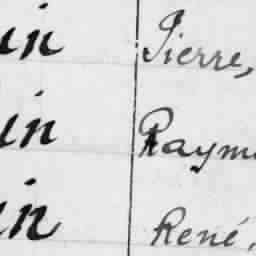 in Pierre,
in Raym
in René,